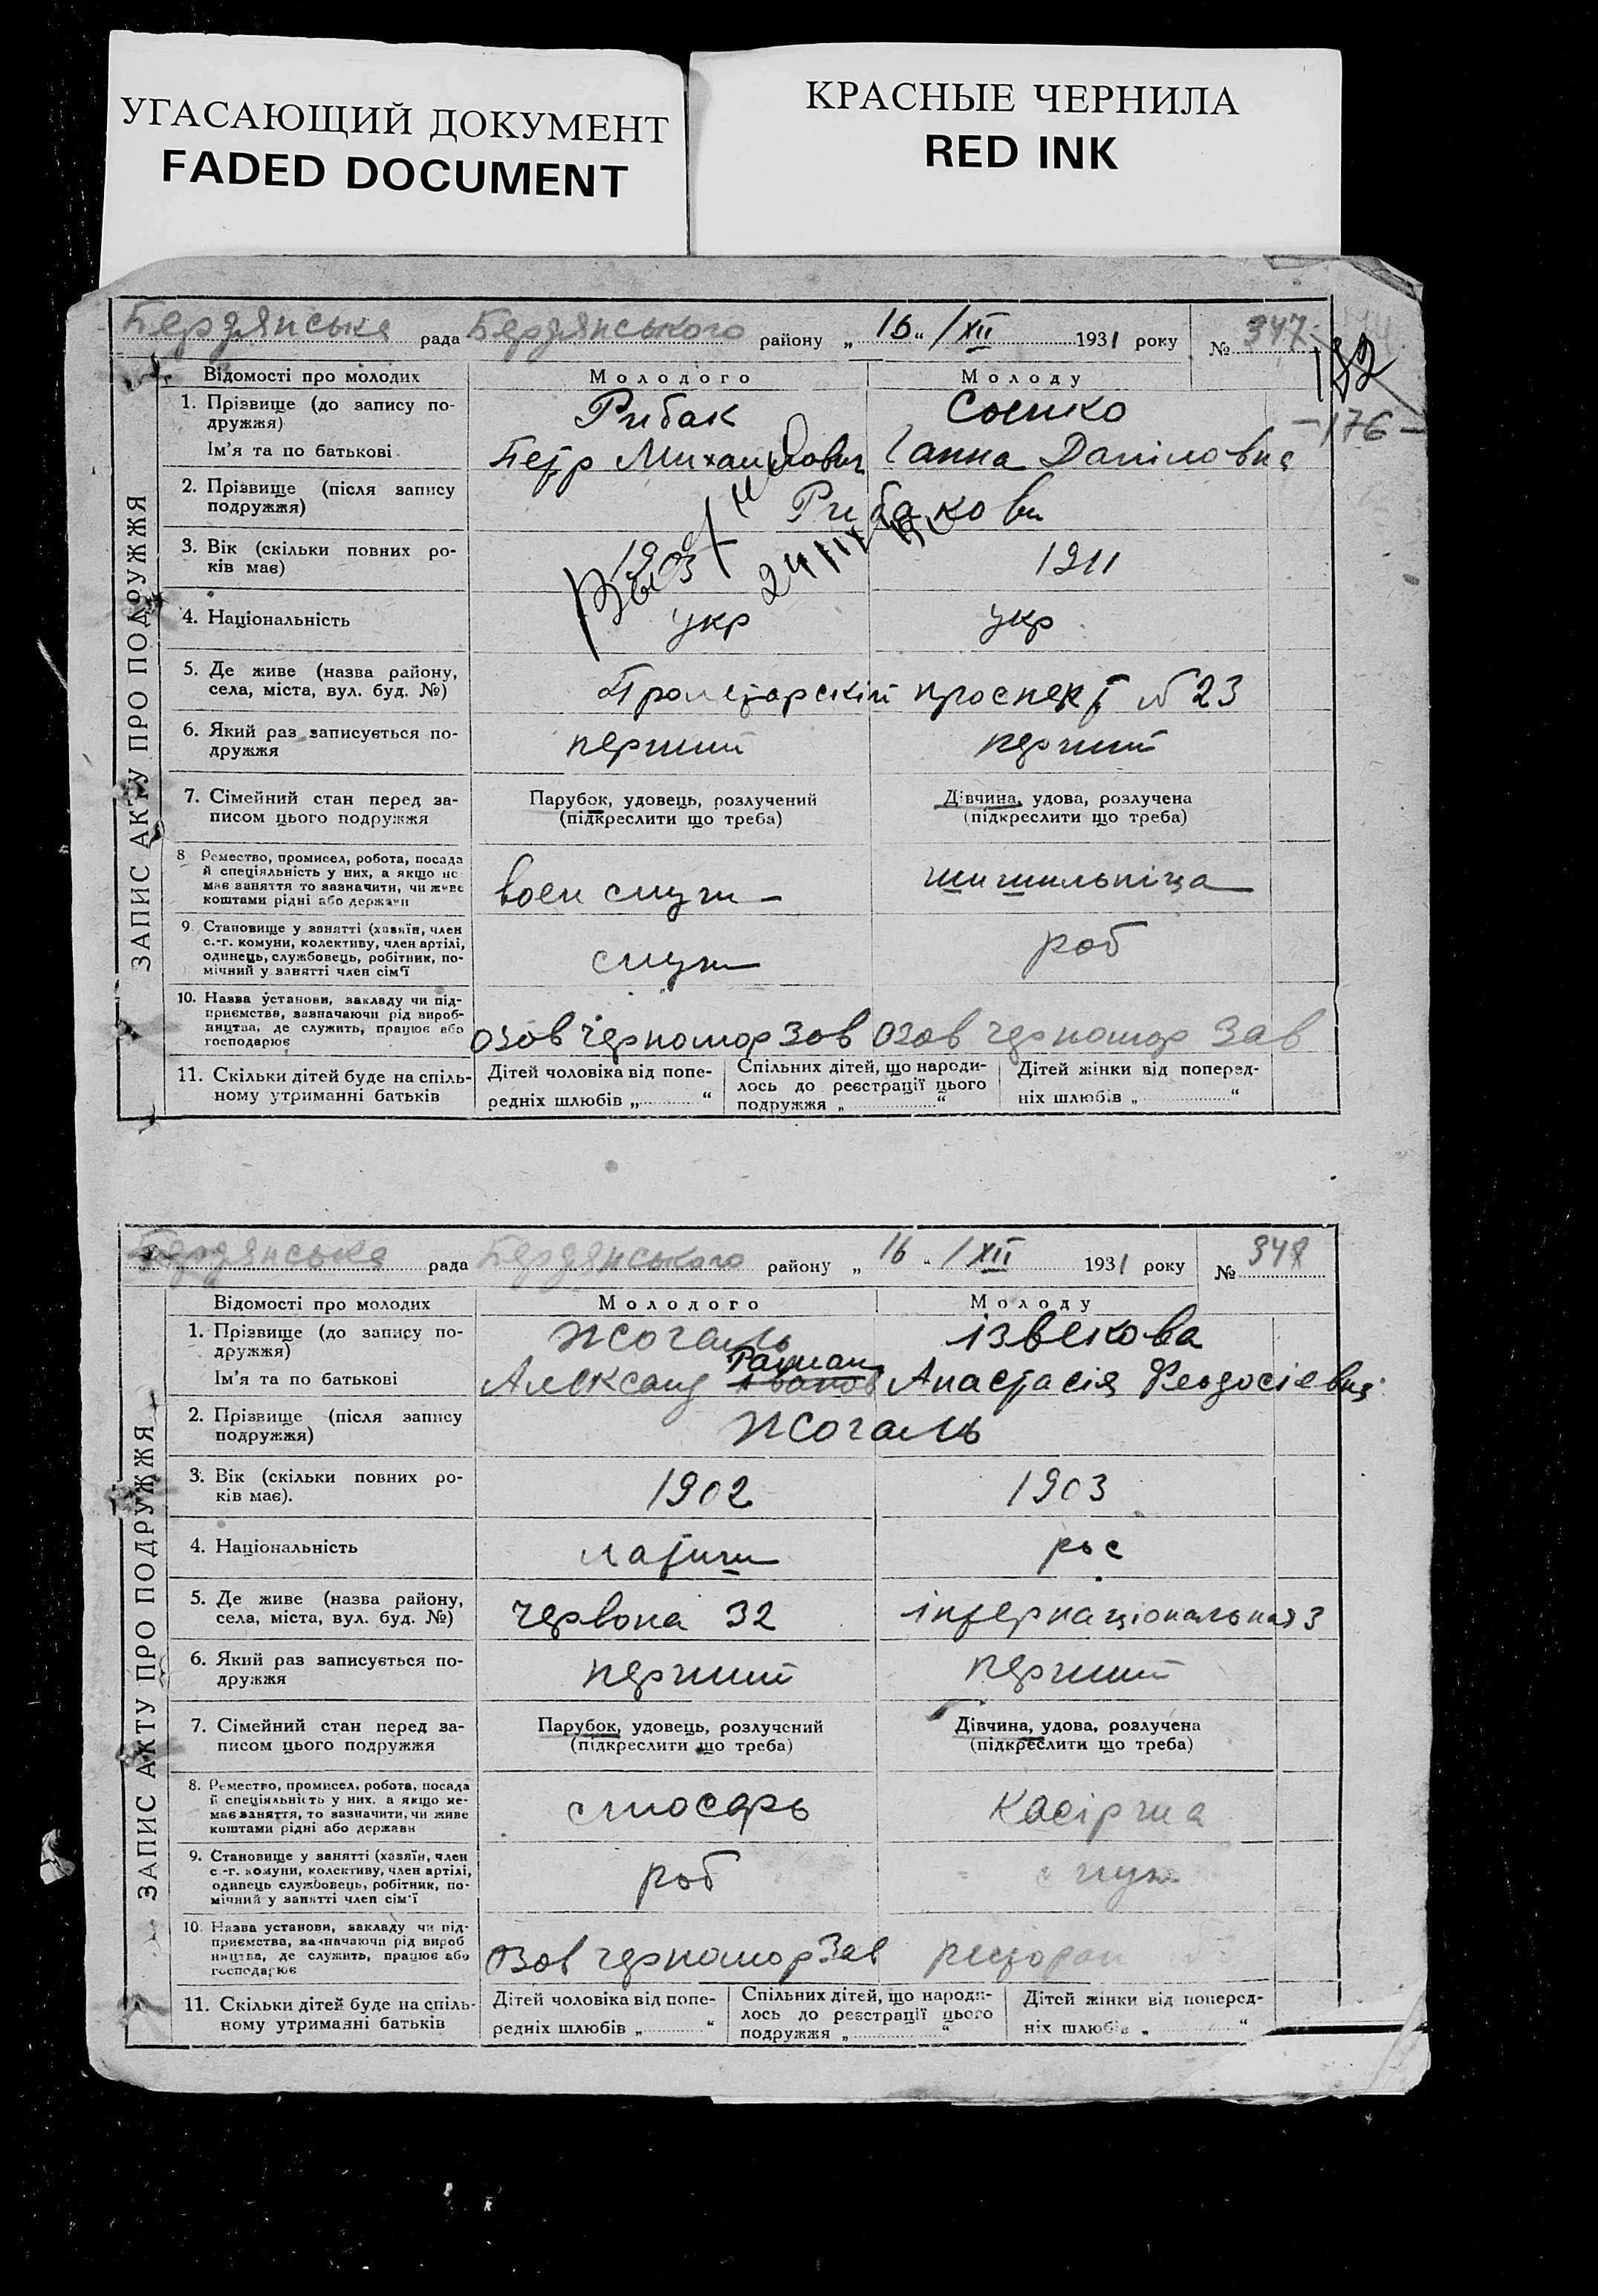 УГАСАЮЩИЙ ДОКУМЕНТ
FADED DOCUMENT
КРАСНЫЕ ЧЕРНИЛА
RED INK
Бердянська рада Бердянського району „ 16 “ /XII 1931 року № 347
182
-176-
ЗАПИС АКТУ ПРО ПОДРУЖЖЯ
Відомості про молодих Молодого Молоду
1. Прізвище (до запису по-
дружжя) Рибак
Ім'я та по батькові Петр Михайлович Ганна Даніловна
2. Прізвище (після запису
подружжя) Рибакови
3. Вік (скільки повних ро-
ків має) 1903 1911
4. Національність укр укр
5. Де живе (назва району,
села, міста, вул. буд. №) Пролетарский проспект № 23
6. Який раз записується по-
дружжя перший перший
7. Сімейний стан перед за-
писом цього подружжя
Парубок, удовець, розлучений
(підкреслити що треба)
Дівчина, удова, розлучена
(підкреслити що треба)
8 Ремество, промисел, робота, посада
й спеціяльність у них, а якщо не
має заняття то зазначити, чи живе
коштами рідні або держави
воен служ шишильніца
9. Становище у занятті (хазяїн, член
с.-г. комуни, колективу, член артілі,
одинець, службовець, робітник, по-
мічний у занятті член сім'ї
служ роб
10. Назва установи, закладу чи під-
приємства, зазначаючи рід вироб-
ництва, де служить, працює або
господарює
Озов Черномор Зав Озов Черномор Зав
11. Скільки дітей буде на спіль-
ному утриманні батьків
Дітей чоловіка від попе-
редніх шлюбів „ “
Спільних дітей, що народи-
лось до реєстрації цього
подружжя „ “
Дітей жінки від поперед-
ніх шлюбів „ “
Бердянська рада Бердянського району „ 16 “ /XII 1931 року № 348
ЗАПИС АКТУ ПРО ПОДРУЖЖЯ
Відомості про молодих Молодого Молоду
1. Прізвище (до запису по-
дружжя) Жогаль Ізвекова
Ім'я та по батькові Александ Анастасія Феодосіевна
2. Прізвище (після запису
подружжя) Жогаль
3. Вік (скільки повних ро-
ків має). 1902 1903
4. Національність латиш рос
5. Де живе (назва району,
села, міста, вул. буд. №) Червона 32 Інтернаціональная 3
6. Який раз записується по-
дружжя перший перший
7. Сімейний стан перед за-
писом цього подружжя
Парубок, удовець, розлучений
(підкреслити що треба)
Дівчина, удова, розлучена
(підкреслити що треба)
8. Ремество, промисел, робота, посада
й спеціяльність у них, а якщо не-
має заняття, то зазначити, чи живе
коштами рідні або держави
слюсарь касірша
9. Становище у занятті (хазяїн, член
с.-г. комуни, колективу, член артілі,
одинець службовець, робітник, по-
мічний у занятті член сім'ї
роб служ
10. Назва установи, закладу чи під-
приємства, зазначаючи рід вироб
ництва, де служить, працює або
господарює
Озов Черномор Зав ресторан
11. Скільки дітей буде на спіль-
ному утриманні батьків
Дітей чоловіка від попе-
редніх шлюбів „ “
Спільних дітей, що народи-
лось до реєстрації цього
подружжя „ “
Дітей жінки від поперед-
ніх шлюбів „ “